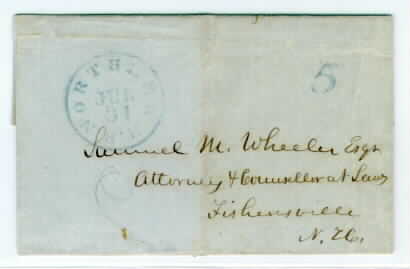 JUL
31
5
Samuel M. Wheeler Esqr
Attorney & Counsellor at Law
Fishersville
N. H.